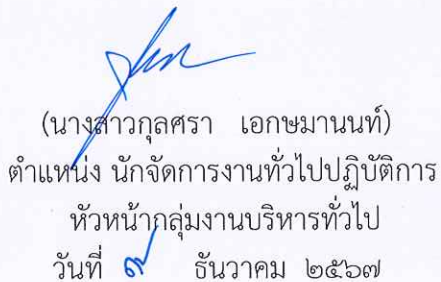 (นางสาวกุลศรา เอกษมานนท์)
ตำแหน่ง นักจัดการงานทั่วไปปฏิบัติการ
หัวหน้ากลุ่มงานบริหารทั่วไป
วันที่ ๙ ธันวาคม ๒๕๖๗